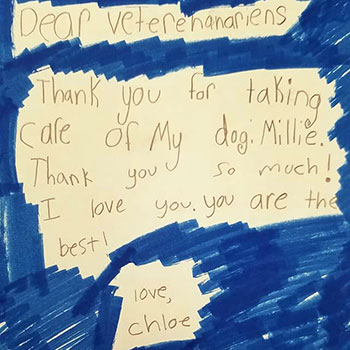 Dear veterehanariens
Thank you for taking
care of My dog. Millie.
Thank you so much!
I love you. you are the
best!
love,
chloe